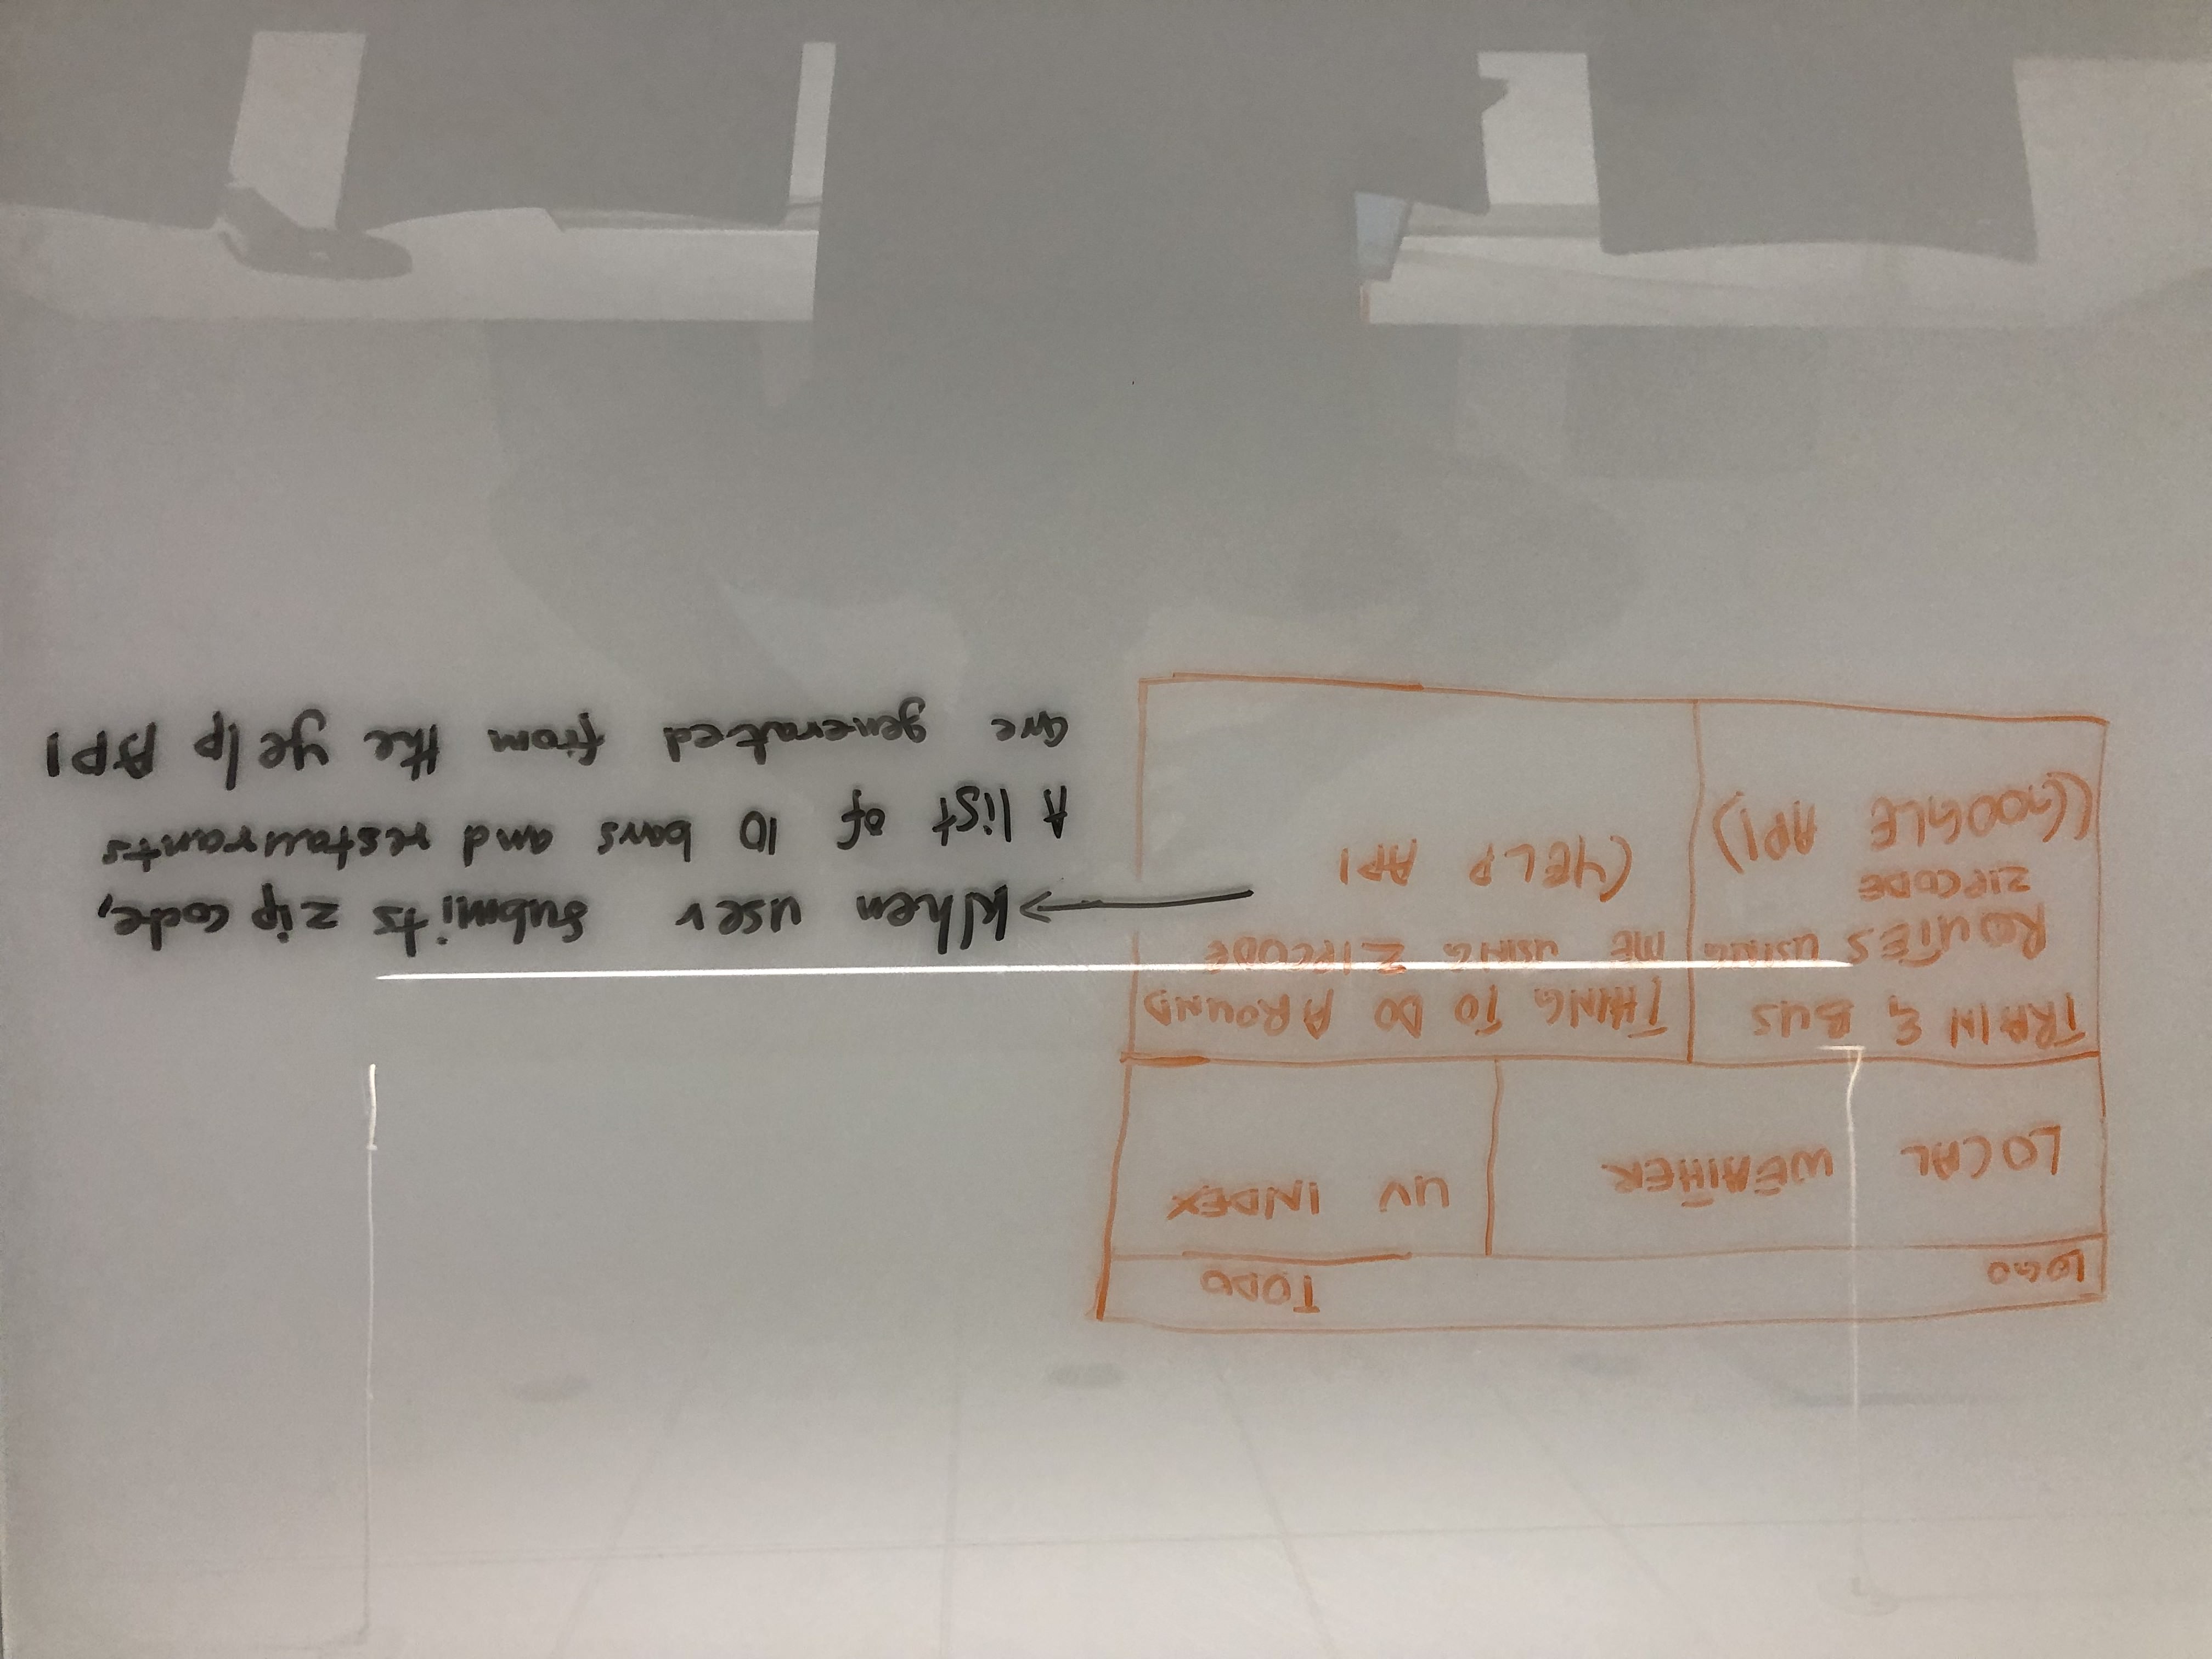 LOGO
TODO
LOCAL WEATHER
UV INDEX
TRAIN & BUS
ROUTES USING
ZIPCODE
(GOOGLE API)
THING TO DO AROUND
ME USING ZIPCODE
(YELP API
When user submits zip code,
A list of 10 bars and restaurants
are generated from the yelp API